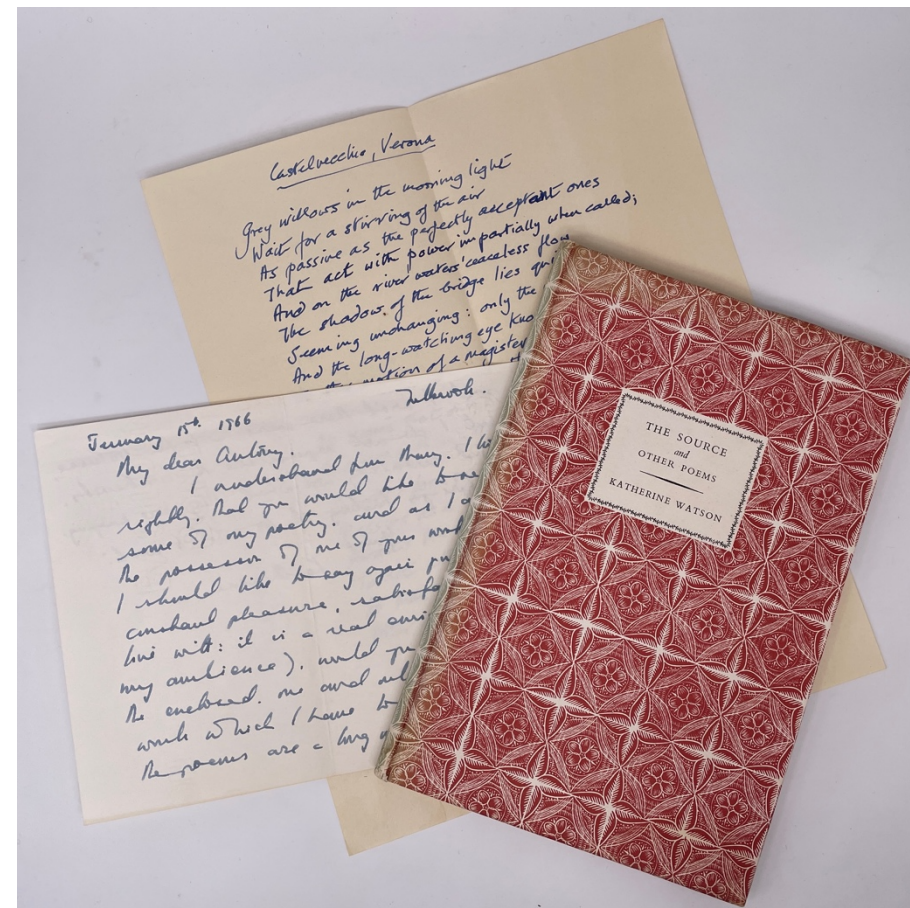 Castelvecchio, Verona
Grey willows in the morning light
Wait for a stirring of the air
As passive as the perfectly acceptant ones
That act with power impartially when called;
And on the river waters' ceaseless flow
The shadow of the bridge lies
Seeming unchanging: only the
And the long-watching eye
motion of a
January 15th 1966
My dear Antony.
I understand from Mary.
rightly, that you would like to
some of my poetry. and as I
the possessor of one of your
I should like to say again
constant pleasure,
live with: it is a real
my ambience). would you
the enclosed. one and
work which I have
the poems are a long
THE SOURCE
and
OTHER POEMS
KATHERINE WATSON